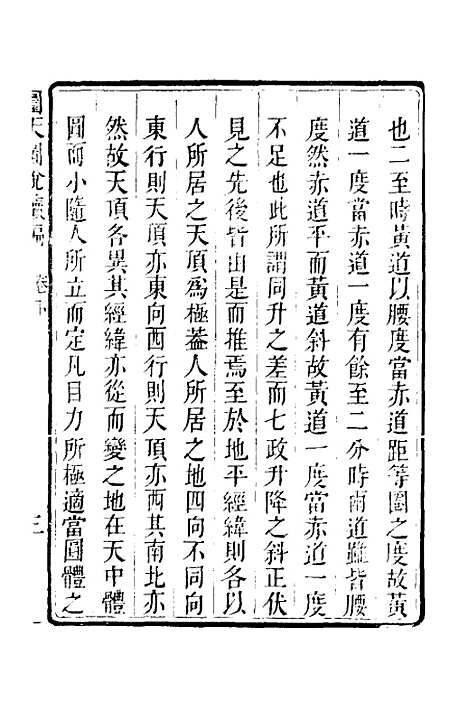 也二至時黃道以腰度當赤道距等圈之度故黃
道一度當赤道一度有餘至二分時兩道雖皆腰
度然赤道平而黃道斜故黃道一度當赤道一度
不足也此所謂同升之差而七政升降之斜正伏
見之先後皆由是而推焉至於地平經緯則各以
人所居之天頂爲極葢人所居之地四向不同向
東行則天頂亦東向西行則天頂亦西其南北亦
然故天頂各異其經緯亦從而變之地在天中體
圓而小隨人所立而定凡目力所極適當圓體之
圜天圖說續編
卷下
三